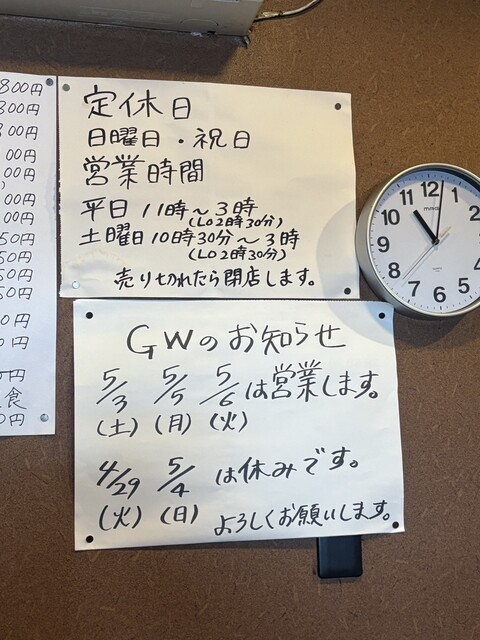 800円
800円
800円
00円
00円
00円
00円
50円
50円
50円
50円
0円
0円
円
食
0円
定休日
日曜日・祝日
営業時間
平日 11時～3時
(LO2時30分)
土曜日 10時30分～3時
(LO2時30分)
売り切れたら閉店します。
GWのお知らせ
5/3 5/5 5/6は営業します。
(土)(月)(火)
4/29 5/4 は休みです。
(火)(日) よろしくお願いします。
12
1
2
3
4
5
6
7
8
9
10
11